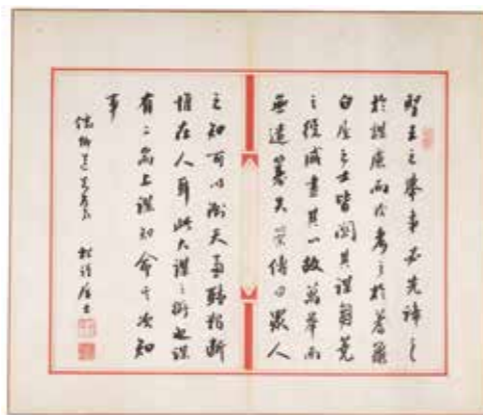 聖王之舉事必先諦之
於謀慮而後考之於蓍龜
白屋之士皆關其謀芻蕘
之役咸盡其心故萬舉而
無遺籌失策傳曰眾人
之知可以測天兼聽獨斷
惟在人耳此大謀之術也謀
有二端上謀知命其次知
事
居士